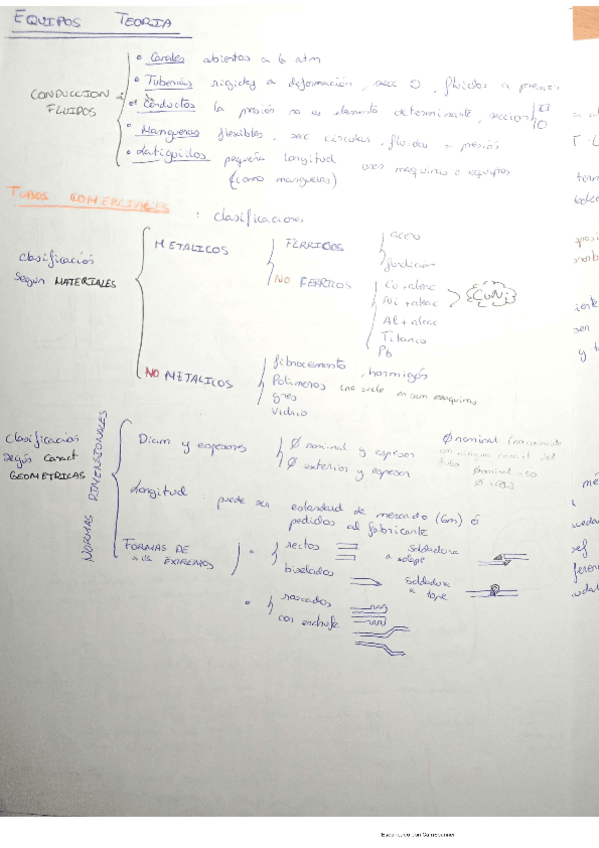 EQUIPOS TEORIA
• Canales abiertos a la atm
• Tuberías rigidez a deformación, secc O, fluidos a presión
CONDUCCION FLUIDOS
• Conductos la presión no es elemento determinante, sección
• Mangueras flexibles, secc circular, fluidos a presión
• Latiguillos pequeña longitud uses maquinas o equipos
(como mangueras)
TUBOS COMERCIALES : clasificaciones
METALICOS
FERRICOS
acero
fundicion
clasificación según MATERIALES
NO FERRICOS
Cu + aleac
Ni + aleac
CuNi
Al + aleac
Titanio
Pb
NO METALICOS
fibrocemento, hormigón
Polimeros (no suele en cam maquinas
gres
Vidrio
clasificación según caract GEOMETRICAS
NORMAS DIMENSIONALES
Diam y espesores
Ø nominal y espesor
Ø exterior y espesor
Ø nominal (no coincide con ninguna caract del tubo
Ønominal = 50
Longitud puede ser estandard de mercado (6m) ó
pedidos al fabricante
FORMAS DE SUS EXTREMOS
• rectos
soldadura a solape
biselados
soldadura a tope
• roscados
con enchufe
Escaneado con CamScanner